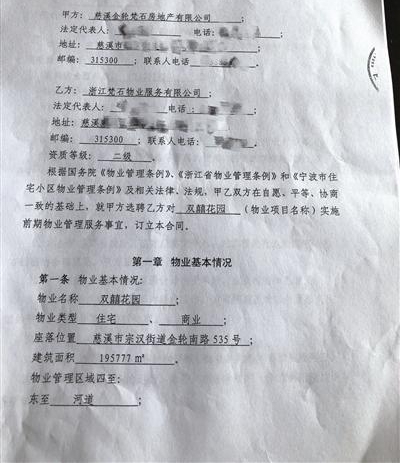 甲方：慈溪金轮梵石房地产有限公司；
法定代表人：电话：；
地址：慈溪市
邮编：315300；联系人电话
乙方：浙江梵石物业服务有限公司；
法定代表人：电话：；
地址：慈溪
邮编：315300；联系人电话：
资质等级：二级。
根据国务院《物业管理条例》、《浙江省物业管理条例》和《宁波市住
宅小区物业管理条例》及相关法律、法规，甲乙双方在自愿、平等、协商
一致的基础上，就甲方选聘乙方对双囍花园（物业项目名称）实施
前期物业管理服务事宜，订立本合同。
第一章 物业基本情况
第一条 物业基本情况：
物业名称 双囍花园；
物业类型 住宅、商业；
座落位置 慈溪市宗汉街道金轮南路535号；
建筑面积 195777㎡。
物业管理区域四至：
东至 河道；